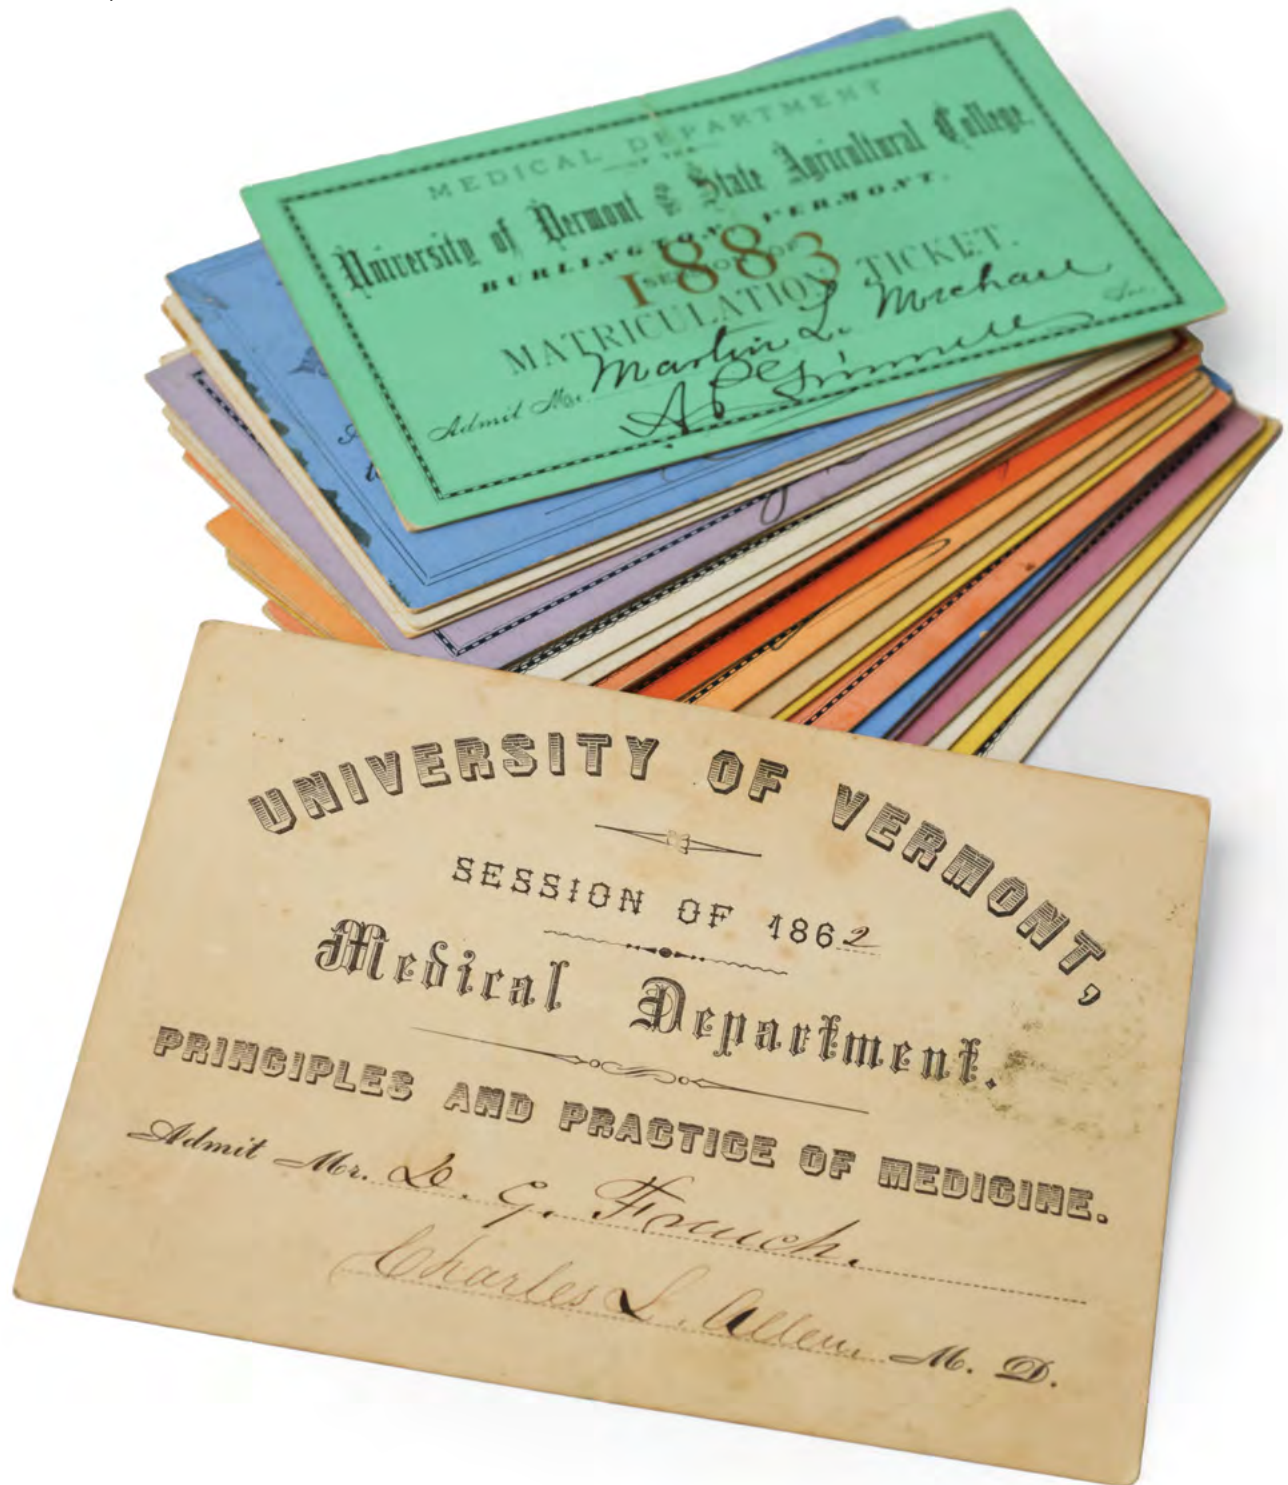 MEDICAL DEPARTMENT
OF THE
University of Vermont & State Agricultural College,
BURLINGTON, VERMONT.
SESSION OF
1883
MATRICULATION TICKET.
Admit Mr. Martin L. 
A P Grinnell
UNIVERSITY OF VERMONT,
SESSION OF 1862
Medical Department.
PRINCIPLES AND PRACTICE OF MEDICINE.
Admit Mr. D. G. French.
Charles L. Allen M. D.